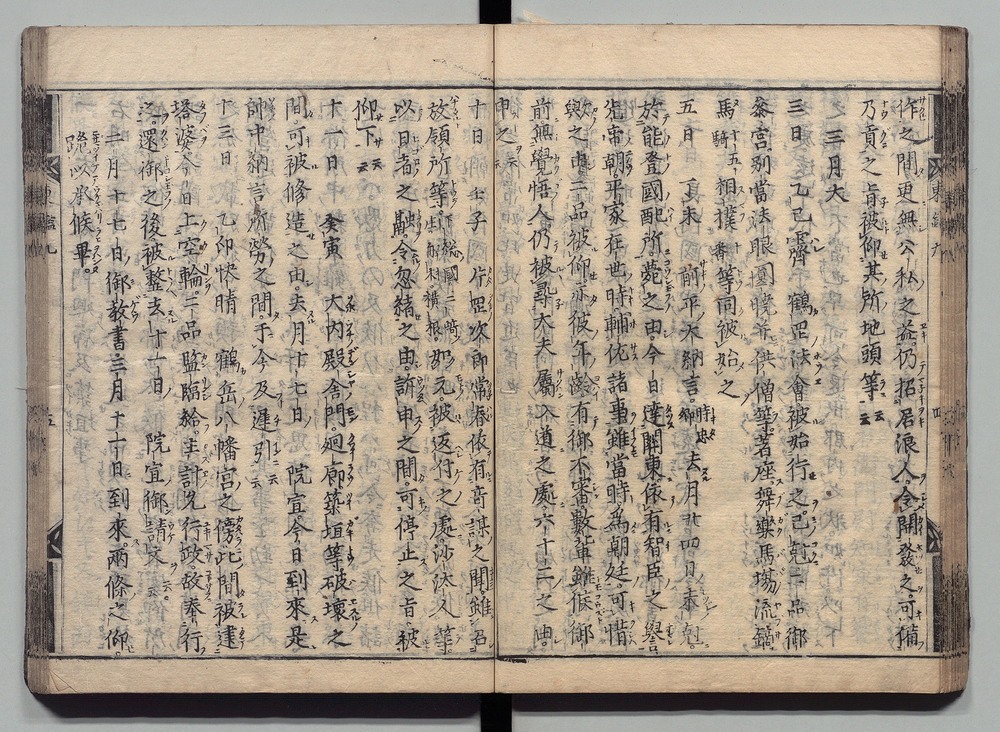 作之間更無公私之益仍招居浪人令開發之可備
乃貢之旨被仰其所地頭等云云
三月大
三日乙巳霽鶴岡法會被始行之已尅二品御
參宮別當法眼圓曉并供僧等著座舞樂馬塲流鏑
馬騎十五相撲番等同被始之
五日丁未前平大納言時忠卿去月廿四日
於能登國配所薨之由今日達關東依有智臣之譽
先帝朝平家在世時輔佐諸事雖當時爲朝廷可惜
歟之由二品被仰亦彼年齒有御不審數輩雖候御
前無覺悟人仍被尋大夫屬入道之處六十二之由
申之云云
十日壬子國片岡次郎常春依有奇謀之聞雖召
放領所等下総國三崎如元被返付之處沙汰人等
以日者之融令忽緒之由訴申之間可停止之旨被
仰下云云
十一日癸寅大内殿舍門廻廊築垣等破壞之
間可被修造之由去月十七日院宣今日到來是
帥中納言所勞之間于今及遲引云云
十三日乙卯快晴鶴岳八幡宮之傍此間被建
塔婆今日上空輪二品監臨給主計允行政故奉行
之還御之後被整去十一日院宣御請文云云
二月十七日御教書三月十一日到來兩條之仰
㕝以承候畢
東鑑九
四
東鑑九
五